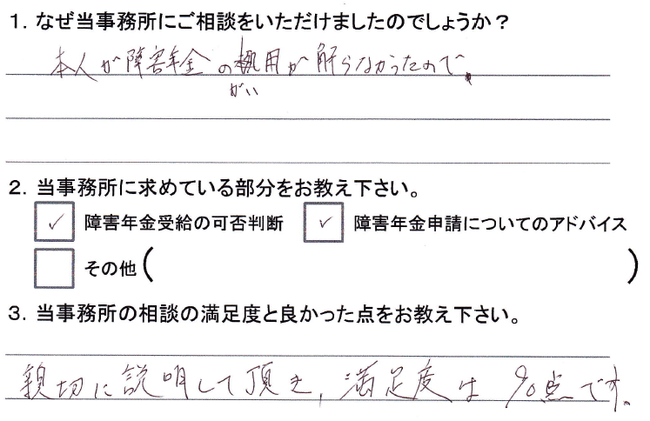 1. なぜ当事務所にご相談をいただけましたのでしょうか？
本人が障害年金の概用が解らなかったので、
がい
2. 当事務所に求めている部分をお教え下さい。
✓ 障害年金受給の可否判断 ✓ 障害年金申請についてのアドバイス
その他（ ）
3. 当事務所の相談の満足度と良かった点をお教え下さい。
親切に説明して頂き、満足度は90点です。